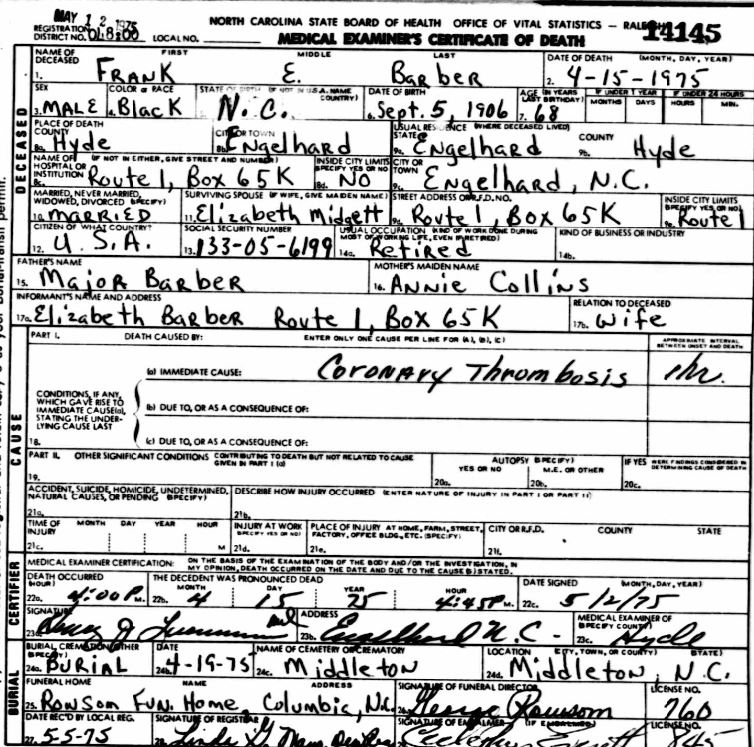 MAY 12 1975
NORTH CAROLINA STATE BOARD OF HEALTH OFFICE OF VITAL STATISTICS — RALEIGH
14145
REGISTRATION DISTRICT NO. LOCAL NO.
MEDICAL EXAMINER'S CERTIFICATE OF DEATH
DECEASED
NAME OF DECEASED FIRST MIDDLE LAST DATE OF DEATH (MONTH, DAY, YEAR)
1. FRANK E. BARBER 2. 4-15-1975
SEX COLOR OR RACE STATE OF BIRTH (IF NOT IN U.S.A. NAME COUNTRY) DATE OF BIRTH AGE (IN YEARS LAST BIRTHDAY) IF UNDER 1 YEAR IF UNDER 24 HOURS
MONTHS DAYS HOURS MIN.
3. MALE 4. Black N.C. 6. Sept. 5, 1906 7. 68
PLACE OF DEATH COUNTY CITY OR TOWN USUAL RESIDENCE (WHERE DECEASED LIVED) STATE COUNTY
8a. Hyde 8b. Engelhard 9a. Engelhard 9b. Hyde
NAME OF HOSPITAL OR INSTITUTION (IF NOT IN EITHER, GIVE STREET AND NUMBER) INSIDE CITY LIMITS (SPECIFY YES OR NO) CITY OR TOWN
8c. Route 1, Box 65K 8d. NO 9c. Engelhard, N.C.
MARRIED, NEVER MARRIED, WIDOWED, DIVORCED (SPECIFY) SURVIVING SPOUSE (IF WIFE, GIVE MAIDEN NAME) STREET ADDRESS OR R.F.D. NO. INSIDE CITY LIMITS (SPECIFY YES OR NO)
10. MARRIED 11. Elizabeth Midgett 9d. Route 1, Box 65K 9e. Route 1
CITIZEN OF WHAT COUNTRY? SOCIAL SECURITY NUMBER USUAL OCCUPATION (KIND OF WORK DONE DURING MOST OF WORKING LIFE, EVEN IF RETIRED) KIND OF BUSINESS OR INDUSTRY
12. U.S.A. 13. 133-05-6199 14a. Retired 14b.
FATHER'S NAME MOTHER'S MAIDEN NAME
15. Major Barber 16. Annie Collins
INFORMANT'S NAME AND ADDRESS RELATION TO DECEASED
17a. Elizabeth Barber Route 1, Box 65K 17b. wife
CAUSE
PART I. DEATH CAUSED BY: ENTER ONLY ONE CAUSE PER LINE FOR (A), (B), (C) APPROXIMATE INTERVAL BETWEEN ONSET AND DEATH
(a) IMMEDIATE CAUSE: Coronary Thrombosis 1hr.
CONDITIONS, IF ANY, WHICH GAVE RISE TO IMMEDIATE CAUSE(a), STATING THE UNDERLYING CAUSE LAST
(b) DUE TO, OR AS A CONSEQUENCE OF:
18. (c) DUE TO, OR AS A CONSEQUENCE OF:
PART II. OTHER SIGNIFICANT CONDITIONS CONTRIBUTING TO DEATH BUT NOT RELATED TO CAUSE GIVEN IN PART I (a) AUTOPSY (SPECIFY) YES OR NO M.E. OR OTHER IF YES WERE FINDINGS CONSIDERED IN DETERMINING CAUSE OF DEATH
19. 20a. 20b. 20c.
ACCIDENT, SUICIDE, HOMICIDE, UNDETERMINED, NATURAL CAUSES, OR PENDING (SPECIFY) DESCRIBE HOW INJURY OCCURRED (ENTER NATURE OF INJURY IN PART I OR PART II)
21a. 21b.
TIME OF INJURY MONTH DAY YEAR HOUR INJURY AT WORK (SPECIFY YES OR NO) PLACE OF INJURY AT HOME, FARM, STREET, FACTORY, OFFICE BLDG., ETC. (SPECIFY) CITY OR R.F.D. COUNTY STATE
21c. M 21d. 21e. 21f.
CERTIFIER
MEDICAL EXAMINER CERTIFICATION: ON THE BASIS OF THE EXAMINATION OF THE BODY AND/OR THE INVESTIGATION, IN MY OPINION, DEATH OCCURRED ON THE DATE AND DUE TO THE CAUSE(S) STATED.
DEATH OCCURRED (HOUR) THE DECEDENT WAS PRONOUNCED DEAD MONTH DAY YEAR HOUR DATE SIGNED (MONTH, DAY, YEAR)
22a. 4:00 P. M. 22b. 4 15 75 4:45 P M. 22c. 5/2/75
SIGNATURE ADDRESS MEDICAL EXAMINER OF (SPECIFY COUNTY)
23a. 23b. Engelhard N.C. 23c. Hyde
BURIAL
BURIAL, CREMATION, OTHER (SPECIFY) DATE NAME OF CEMETERY OR CREMATORY LOCATION (CITY, TOWN, OR COUNTY) (STATE)
24a. BURIAL 24b. 4-19-75 24c. Middleton 24d. Middleton, N.C.
FUNERAL HOME NAME ADDRESS SIGNATURE OF FUNERAL DIRECTOR LICENSE NO.
25. Rowsom Fun. Home, Columbia, N.C. George Rowsom 760
DATE REC'D BY LOCAL REG. SIGNATURE OF REGISTRAR SIGNATURE OF EMBALMER (IF EMBALMED) LICENSE NO.
27. 5-5-75 28. Linda G.